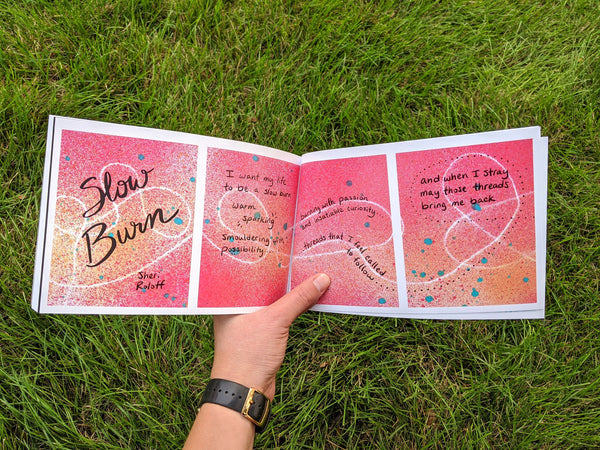 Slow
Burn
Sheri
Roloff
I want my life
to be a slow burn
warm
sparking
smouldering with
possibility
burning with passion
and insatiable curiosity
threads that I feel called
to follow
and when I stray
may those threads
bring me back